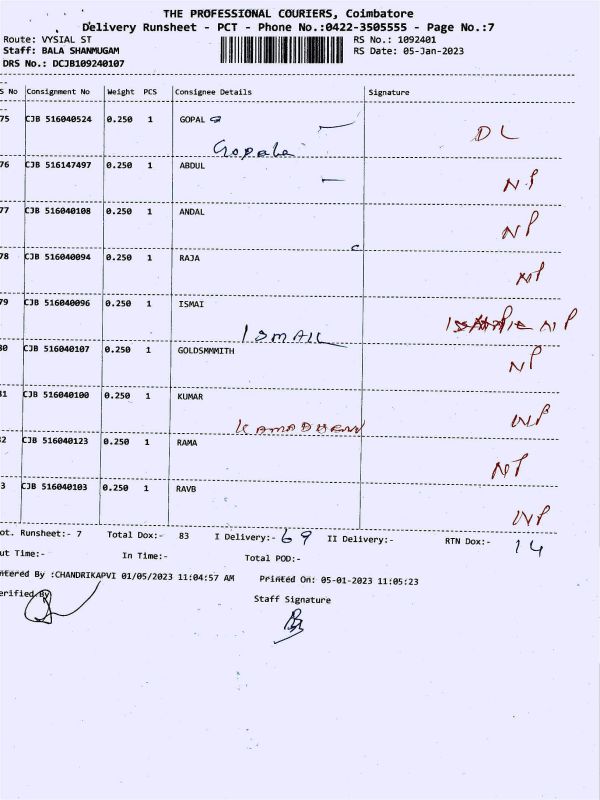 THE PROFESSIONAL COURIERS, Coimbatore
Delivery Runsheet - PCT - Phone No.:0422-3505555 - Page No.:7
Route: VYSIAL ST RS No.: 1092401
Staff: BALA SHANMUGAM RS Date: 05-Jan-2023
DRS No.: DCJB109240107
S No Consignment No Weight PCS Consignee Details Signature
75 CJB 516040524 0.250 1 GOPAL DL
Gopala
76 CJB 516147497 0.250 1 ABDUL NP
77 CJB 516040108 0.250 1 ANDAL NP
78 CJB 516040094 0.250 1 RAJA NP
79 CJB 516040096 0.250 1 ISMAI NP
ISMAIL
80 CJB 516040107 0.250 1 GOLDSMMMITH NP
81 CJB 516040100 0.250 1 KUMAR NP
82 CJB 516040123 0.250 1 RAMA NP
3 CJB 516040103 0.250 1 RAVB NP
ot. Runsheet:- 7 Total Dox:- 83 I Delivery:- 69 II Delivery:- RTN Dox:- 14
ut Time:- In Time:- Total POD:-
ntered By :CHANDRIKAPVI 01/05/2023 11:04:57 AM Printed On: 05-01-2023 11:05:23
erified By
Staff Signature